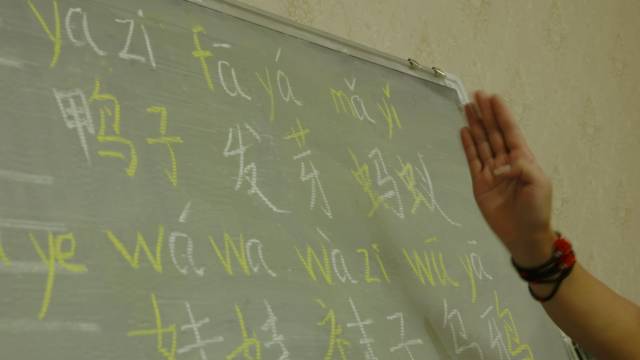 yazi fā yá mǎyǐ
鸭子 发芽 蚂蚁
ye wá wa wàzi wūyā
娃娃 袜子 乌鸦